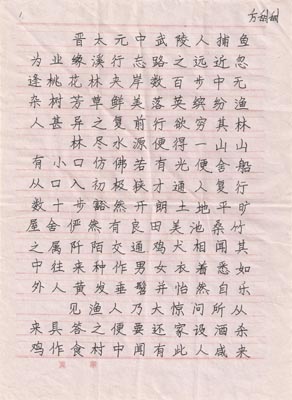 方甜甜
晋太元中武陵人捕鱼
为业缘溪行忘路之远近忽
逢桃花林夹岸数百步中无
杂树芳草鲜美落英缤纷渔
人甚异之复前行欲穷其林
林尽水源便得一山山
有小口仿佛若有光便舍船
从口入初极狭才通人复行
数十步豁然开朗土地平旷
屋舍俨然有良田美池桑竹
之属阡陌交通鸡犬相闻其
中往来种作男女衣着悉如
外人黄发垂髫并怡然自乐
见渔人乃大惊问所从
来具答之便要还家设酒杀
鸡作食村中闻有此人咸来